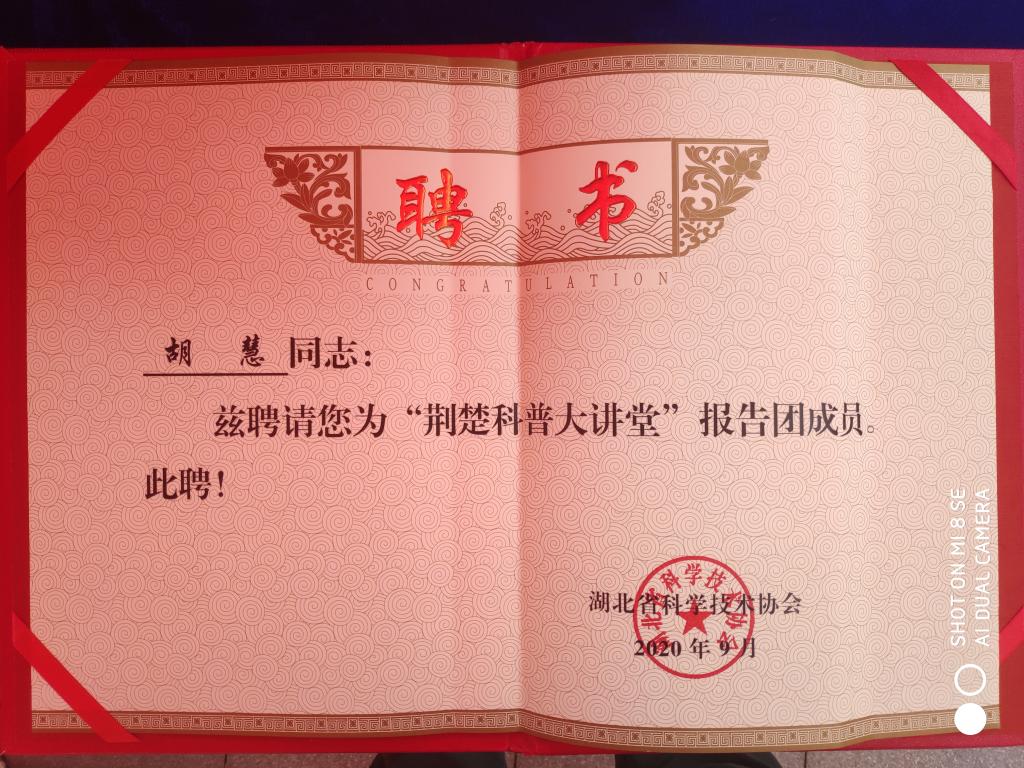 聘 书
CONGRATULATION
胡 慧 同志：
兹聘请您为“荆楚科普大讲堂”报告团成员。
此聘！
湖北省科学技术协会
2020年9月
湖北省科学技术协会
SHOT ON MI 8 SE
AI DUAL CAMERA